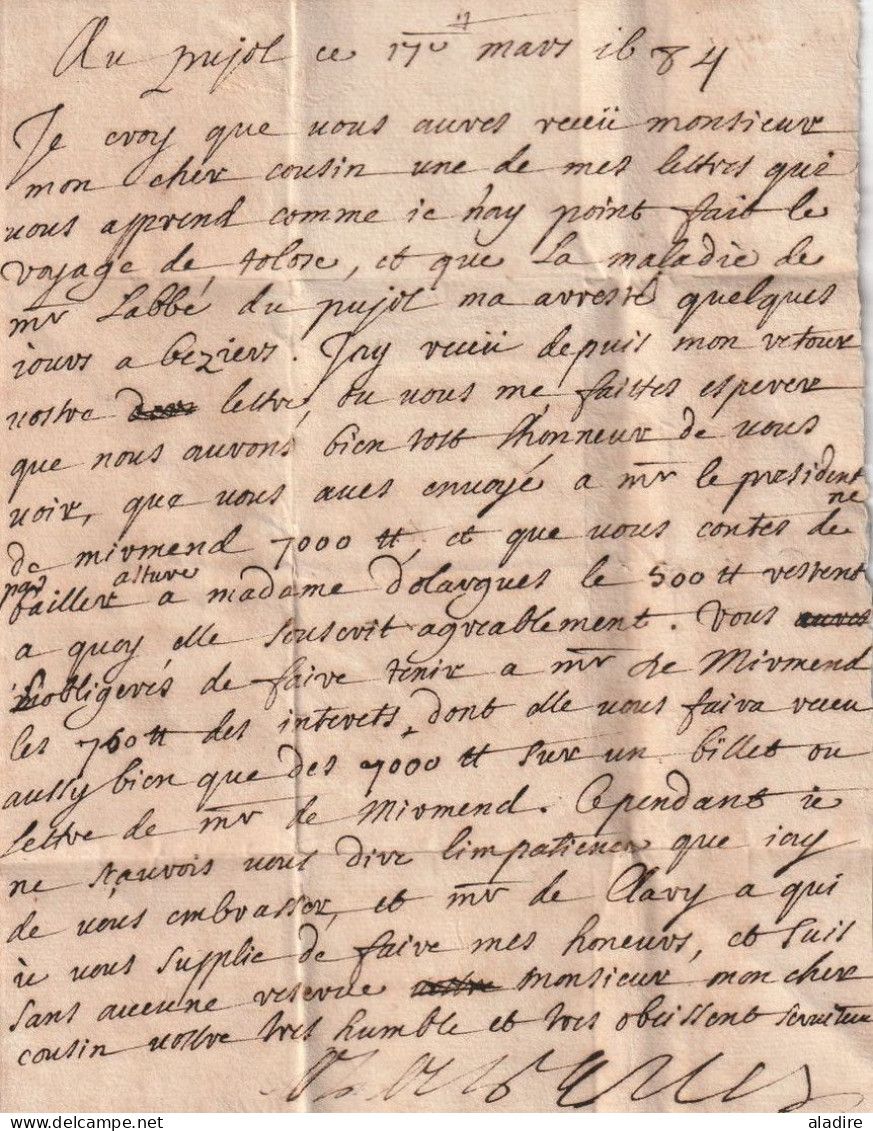 Au pujol ce 17e mars 1684
Je croy que vous aures receü monsieur
mon cher cousin une de mes lettres qui
vous apprend comme ie nay point fait le
voyage de tolose, et que la maladie de
mr Labbé du pujol ma arresté quelques
iours a beziers. Jay receü depuis mon retour
vostre lettre, ou vous me faittes esperer
que nous aurons bien tost lhonneur de vous
voir, que vous aves envoyé a mr le president
de mirmend 7000 tt, et que vous contes de ne
pas bailler asture a madame dolargues le 500 tt restent
a quoy elle souscrit agreablement. Vous
mobligerés de faire tenir a mr de Mirmend
les 760 tt des interets, dont elle vous faira receu
aussy bien que des 7000 tt sur un billet ou
lettre de mr de Mirmend. Cependant ie
ne sçaurois vous dire limpatience que iay
de vous embrasser, et mr de Clavy a qui
ie vous supplie de faire mes honeurs, et suis
sans aucune reserve monsieur mon cher
cousin vostre tres humble et tres obeissent serviteur
aladire